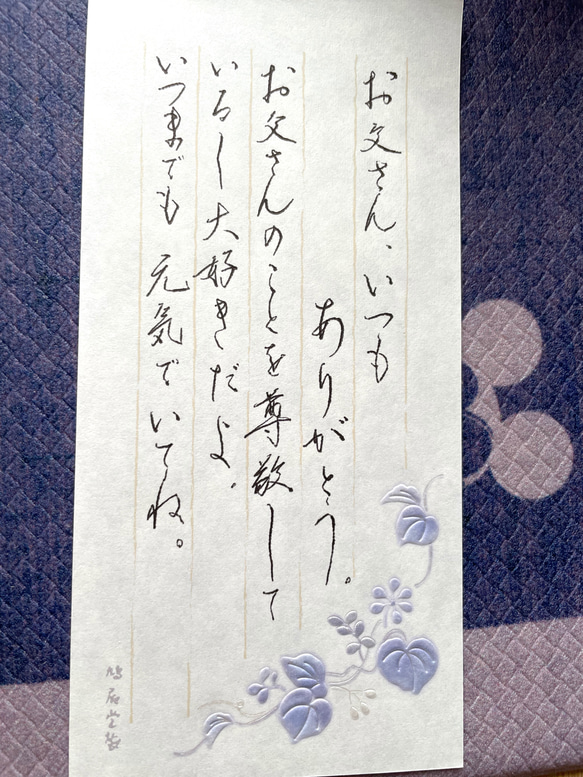 お父さん、いつも
ありがとう。
お父さんのことを尊敬して
いるし大好きだよ。
いつまでも 元気で いてね。
鳩居堂製